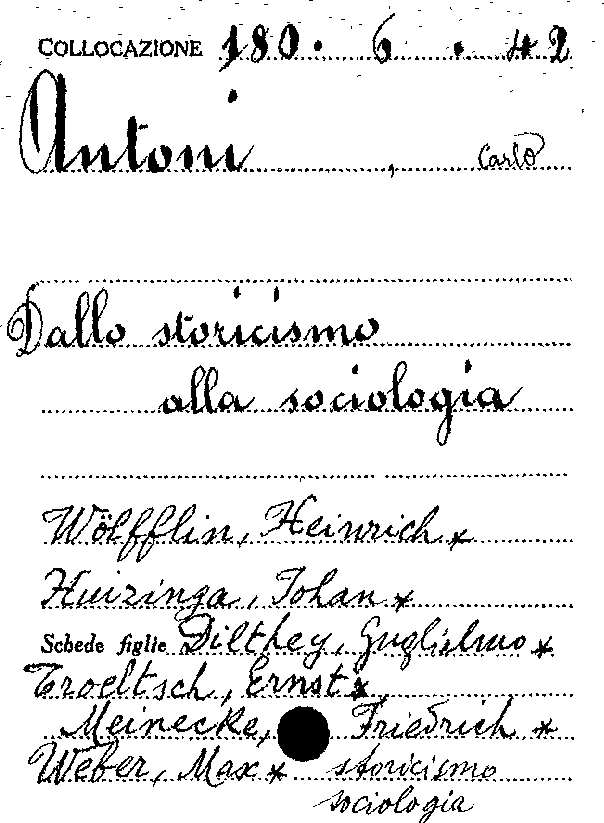 COLLOCAZIONE 180. 6. 42
Antoni, Carlo
Dallo storicismo
alla sociologia
Wölfflin, Heinrich *
Huizinga, Johan *
Schede figlie Dilthey, Guglielmo *
Troeltsch, Ernst *
Meinecke, Friedrich *
Weber, Max * storicismo
sociologia